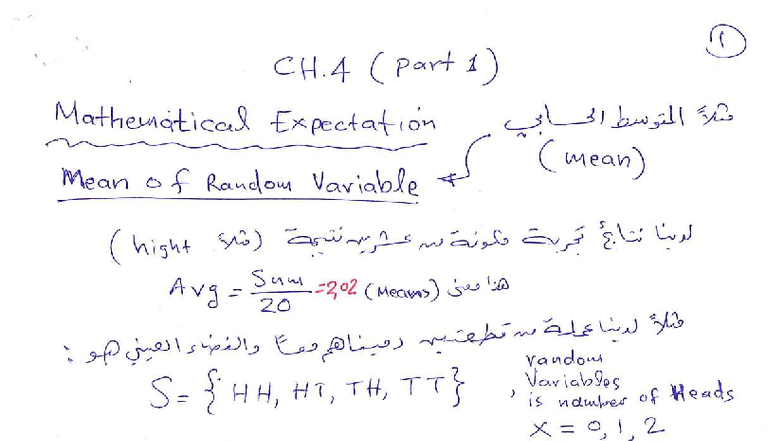 1
CH.4 (Part 1)
Mathematical Expectation
مثلاً المتوسط الحسابي
(mean)
Mean of Random Variable
لدينا نتائج تجربة مكونة من عشرين نتيجة (مثلاً hight)
Avg = Sum/20 =2,02 (Means) هذا معنى
مثلاً لدينا عملة من قطعتين رميناهم معاً والفضاء العيني هو :
S = { HH, HT, TH, TT } , random
Variables
is number of Heads
x = 0, 1, 2